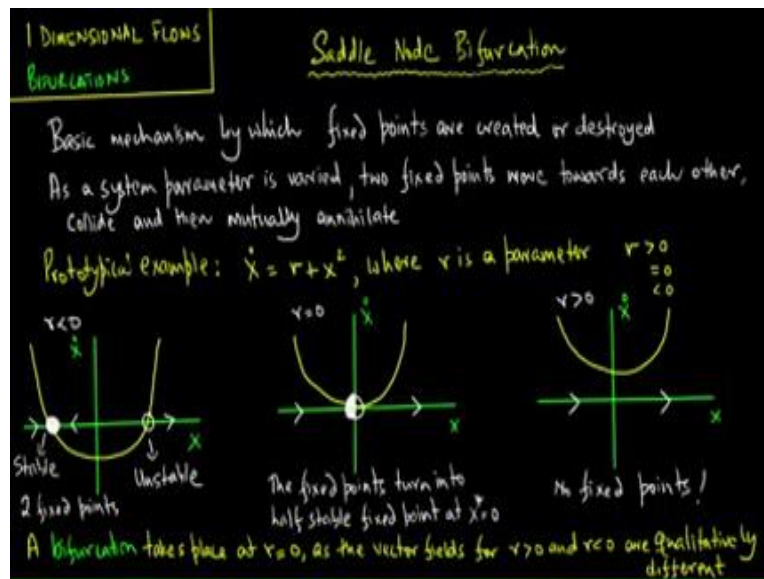 1 DIMENSIONAL FLOWS
BIFURCATIONS
Saddle Node Bifurcation
Basic mechanism by which fixed points are created or destroyed
As a system parameter is varied, two fixed points move towards each other,
collide and then mutually annihilate
Prototypical example: ẋ = r + x², where r is a parameter r > 0
= 0
< 0
r<0
ẋ
x
Stable
Unstable
2 fixed points
r=0
ẋ
x
The fixed points turn into
half stable fixed point at x*=0
r>0
ẋ
x
No fixed points!
A bifurcation takes place at r=0, as the vector fields for r>0 and r<0 are qualitatively
different